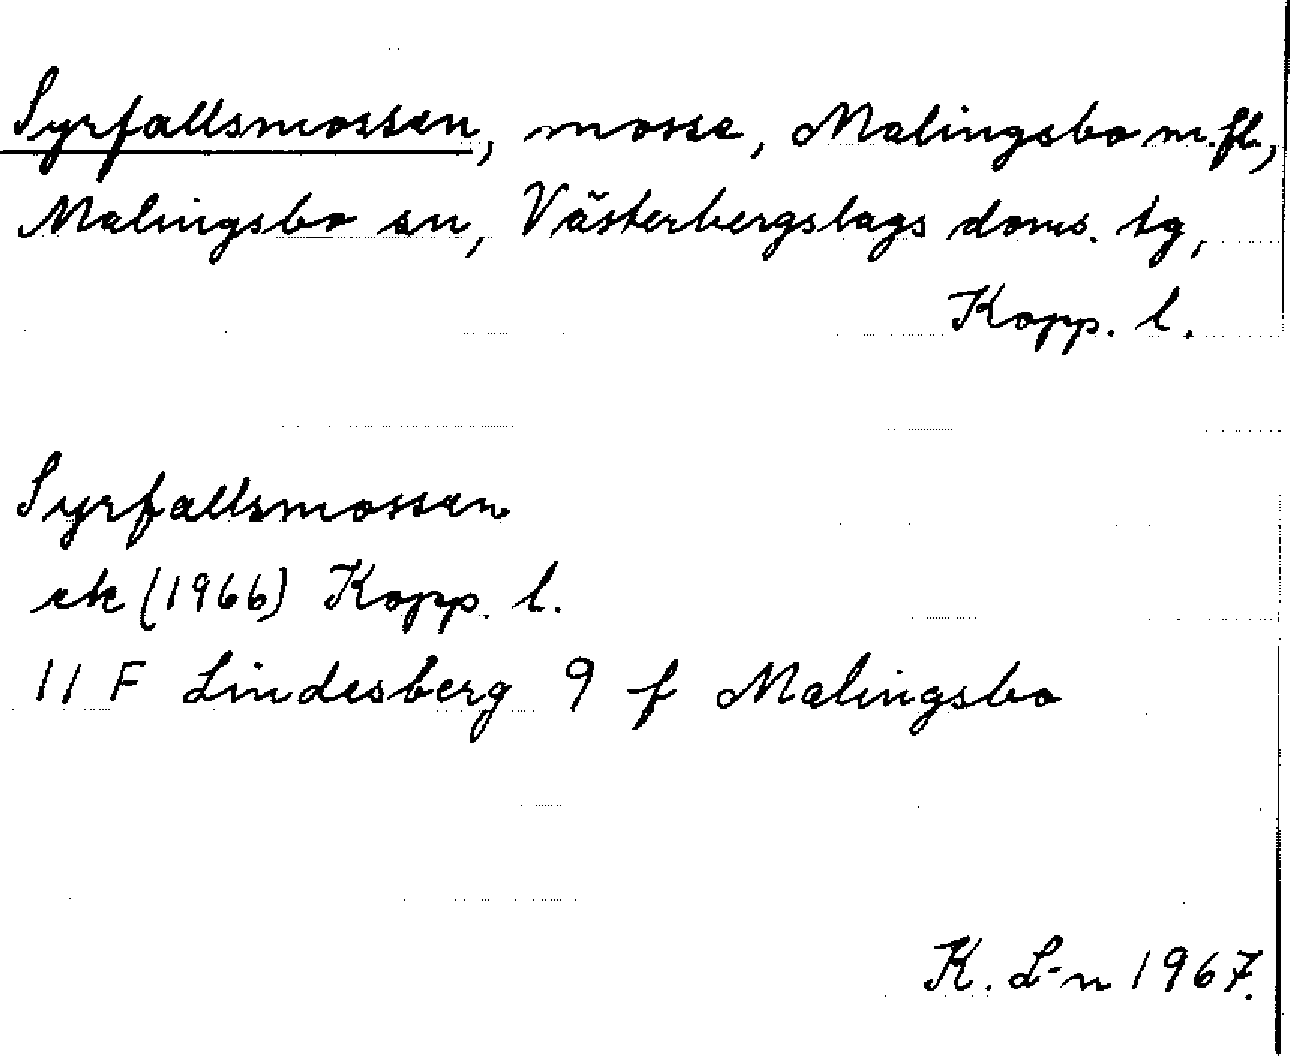 Syrfallsmossen, mosse, Malingsbo m.fl.,
Malingsbo sn, Västerbergslags doms. tg,
Kopp. l.
Syrfallsmossen
ek (1966) Kopp. l.
11 F Lindesberg 9 f Malingsbo
K. L-n 1967.